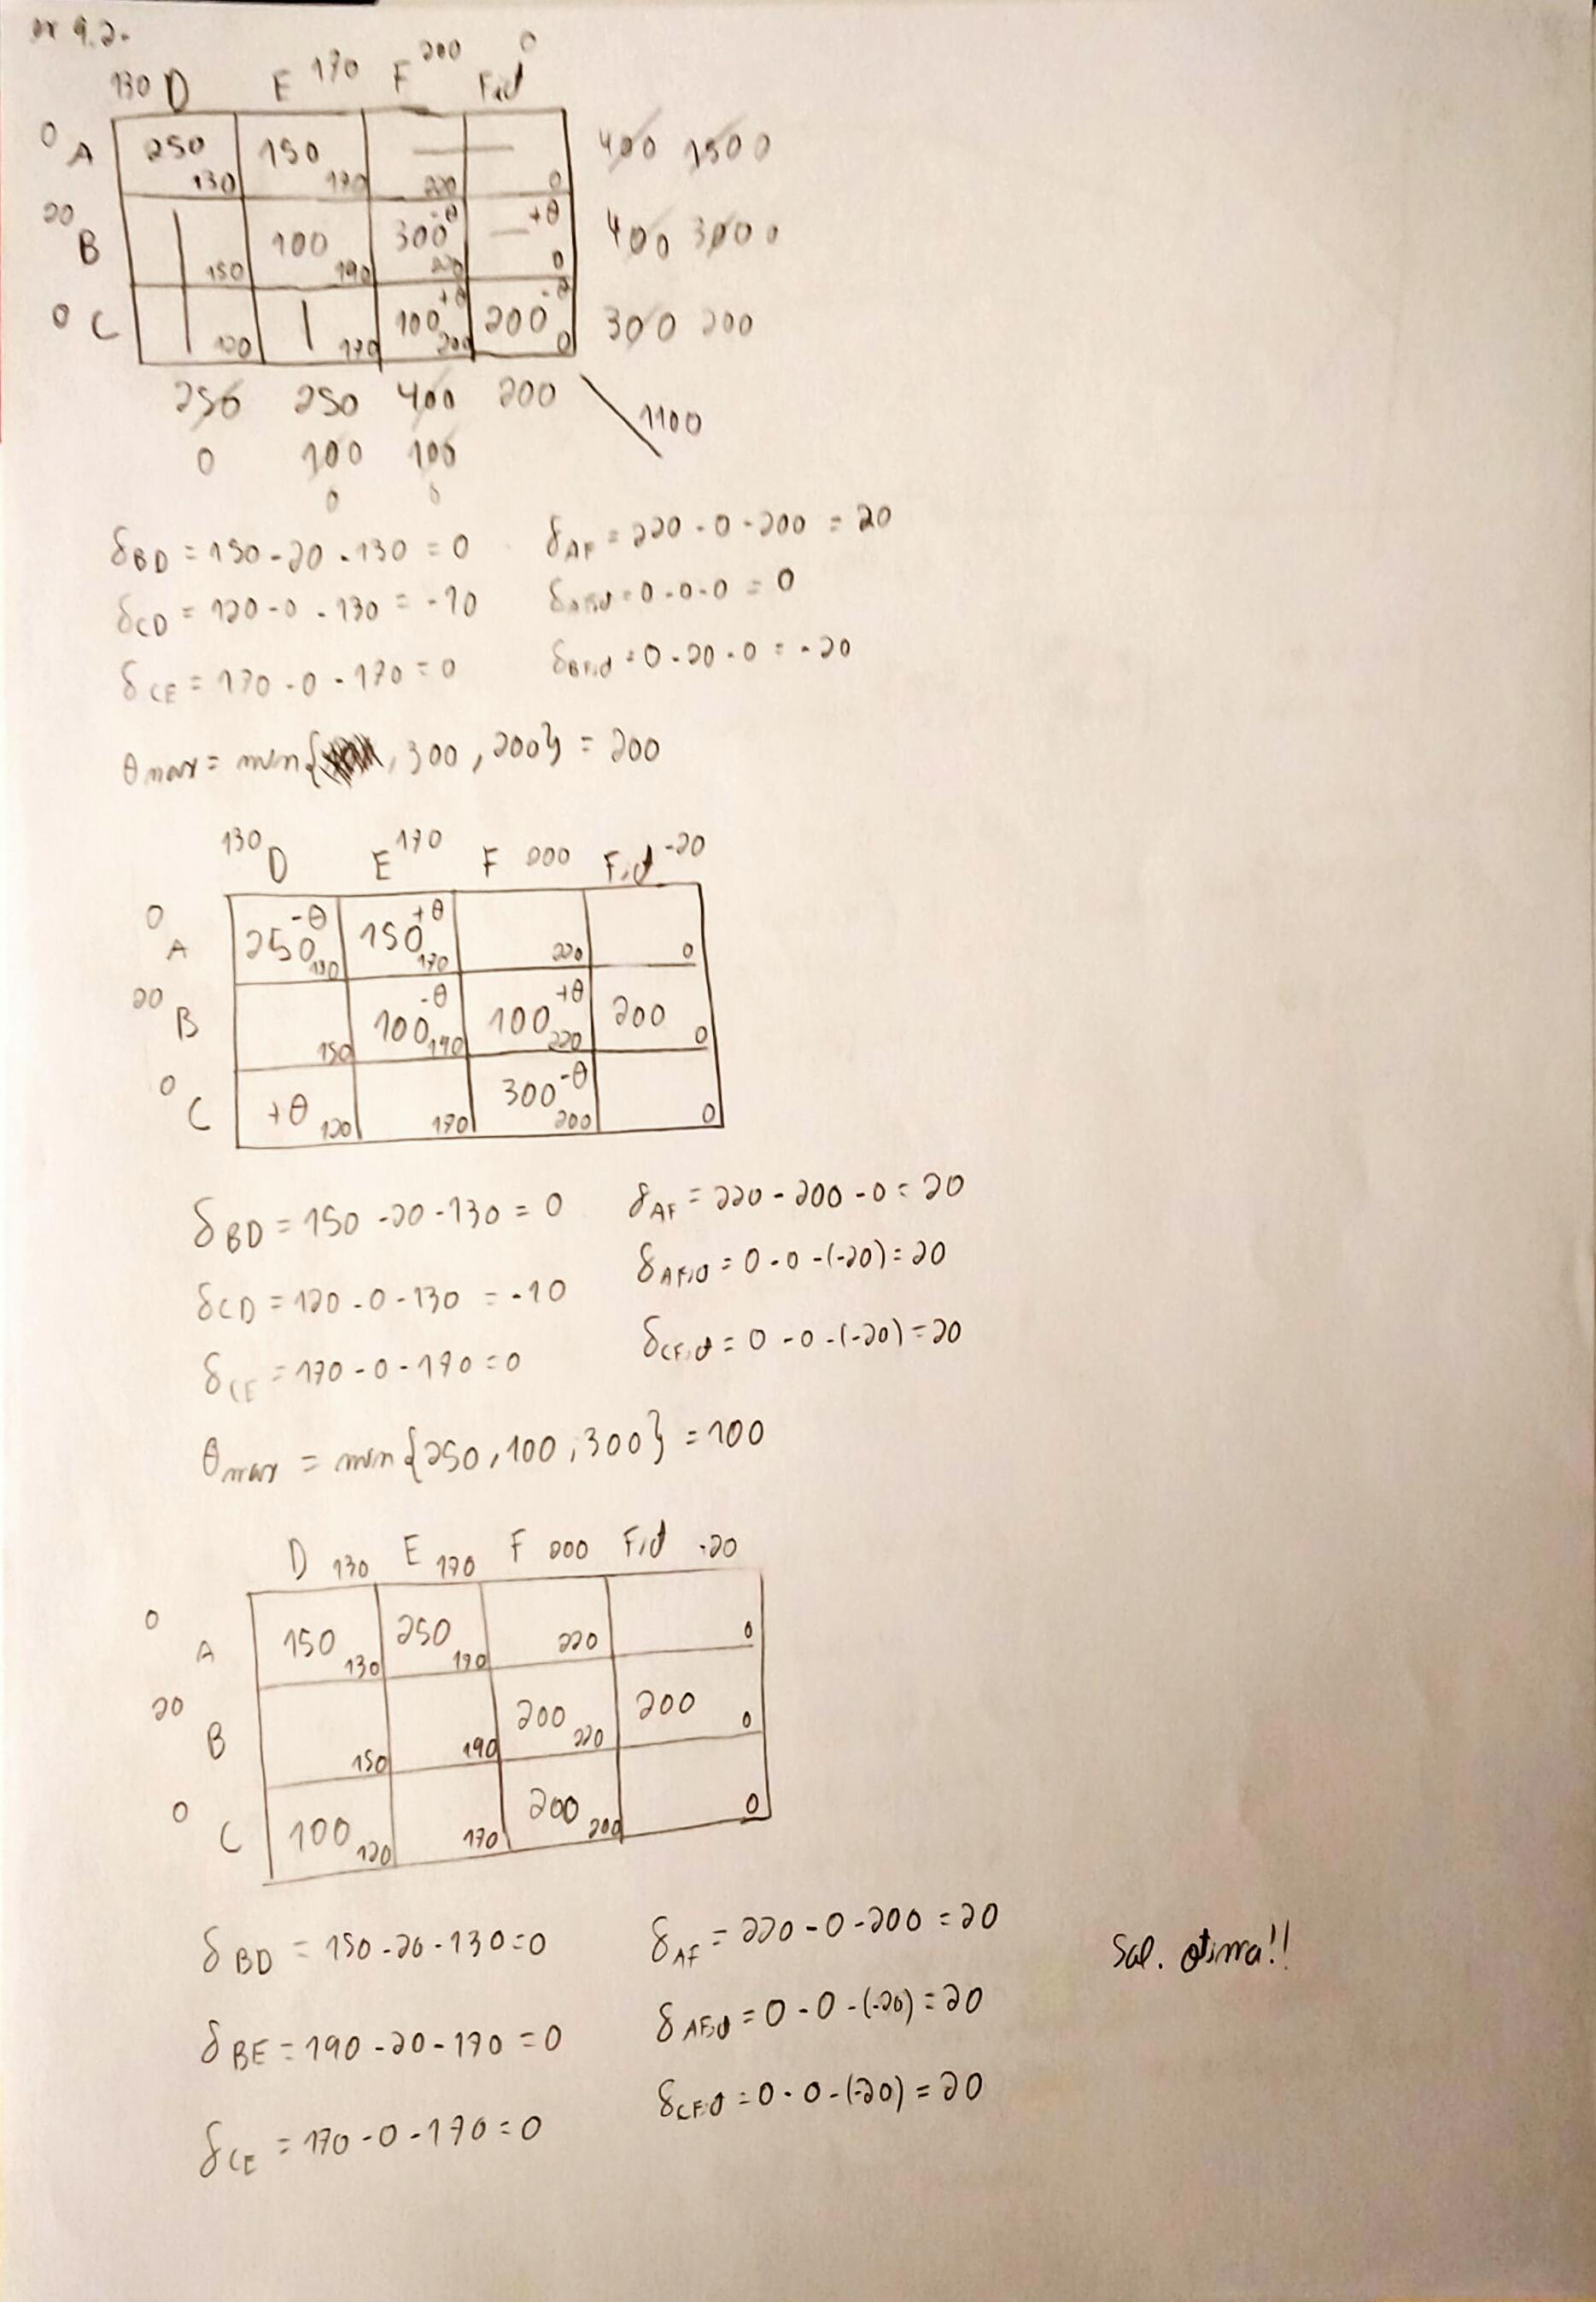 ex 9.2-
130 D E 170 F 200 Fict 0
0 A 250 130 150 170 — 220 0 400 150 0
20 B 150 100 190 300 -θ 220 — +θ 0 400 300 0
0 C 120 170 100 +θ 200 200 -θ 0 300 200
250 250 400 200 1100
0 100 100
0 0
δBD = 150 - 20 - 130 = 0 δAF = 220 - 0 - 200 = 20
δCD = 120 - 0 - 130 = -10 δAFict = 0 - 0 - 0 = 0
δCE = 170 - 0 - 170 = 0 δBFict = 0 - 20 - 0 = -20
θmax = min{ , 300, 200} = 200
130 D E 170 F 200 Fict -20
0 A 250 -θ 130 150 +θ 170 220 0
20 B 150 100 -θ 190 100 +θ 220 200 0
0 C +θ 120 170 300 -θ 200 0
δBD = 150 - 20 - 130 = 0 δAF = 220 - 200 - 0 = 20
δCD = 120 - 0 - 130 = -10 δAFict = 0 - 0 - (-20) = 20
δCE = 170 - 0 - 170 = 0 δCFict = 0 - 0 - (-20) = 20
θmax = min{250, 100, 300} = 100
D 130 E 170 F 200 Fict -20
0 A 150 130 250 170 220 0
20 B 150 190 200 220 200 0
0 C 100 120 170 200 200 0
δBD = 150 - 20 - 130 = 0 δAF = 220 - 0 - 200 = 20 Sol. otima!!
δBE = 190 - 20 - 170 = 0 δAFict = 0 - 0 - (-20) = 20
δCE = 170 - 0 - 170 = 0 δCFict = 0 - 0 - (-20) = 20